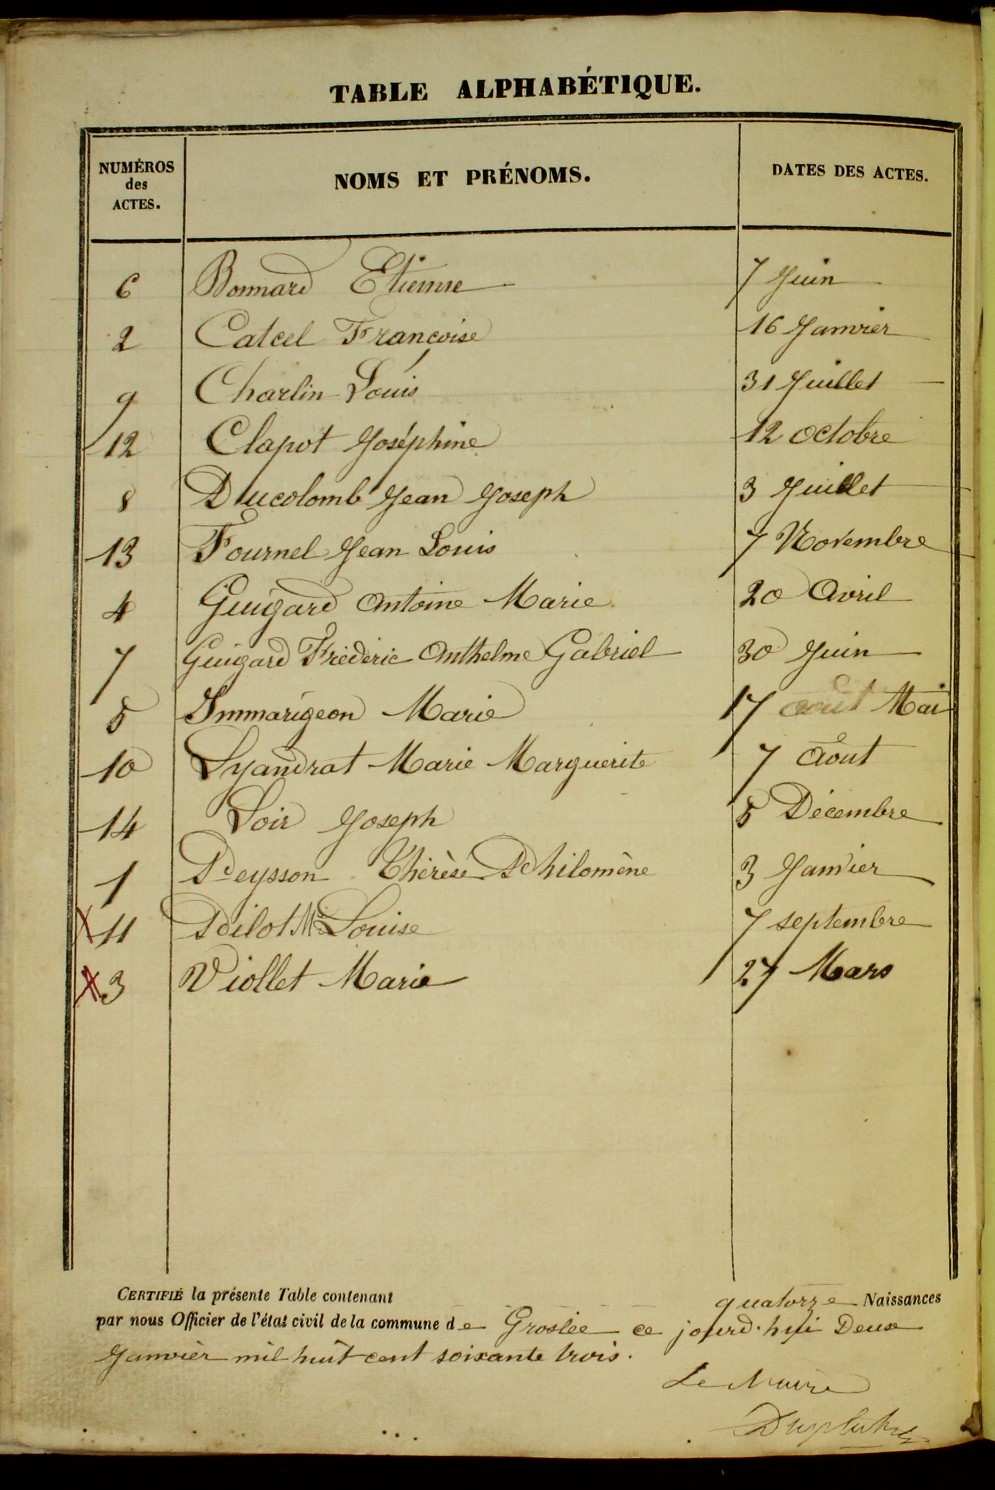 TABLE ALPHABÉTIQUE.
NUMÉROS des ACTES. NOMS ET PRÉNOMS. DATES DES ACTES.
6 Bonnard Etienne 7 Juin
2 Catcel Francoise 16 Janvier
9 Charlin Louis 31 Juillet
12 Clapot Joséphine 12 octobre
8 Ducolomb Jean Joseph 3 Juillet
13 Fournel Jean Louis 7 Novembre
4 Guigard Antoine Marie 20 Avril
7 Guigard Fréderic Anthelme Gabriel 30 Juin
5 Immarigeon Marie 17 août Mai
10 Lyandrat Marie Marguerite 7 Août
14 Loir Joseph 5 Décembre
1 Peysson Thérèse Philomène 3 Janvier
X 11 Pilot Mie Louise 7 septembre
X 3 Viollet Marie 27 Mars
CERTIFIÉ la présente Table contenant quatorze Naissances
par nous Officier de l'état civil de la commune de Groslée ce jourd'hui Deux
Janvier mil huit cent soixante trois.
Le Maire